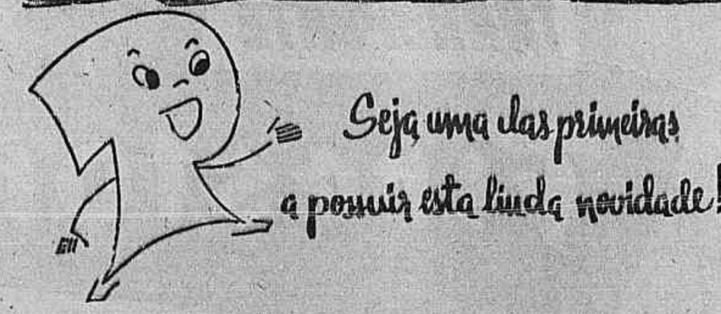 Seja uma das primeiras
a possuir esta linda novidade!